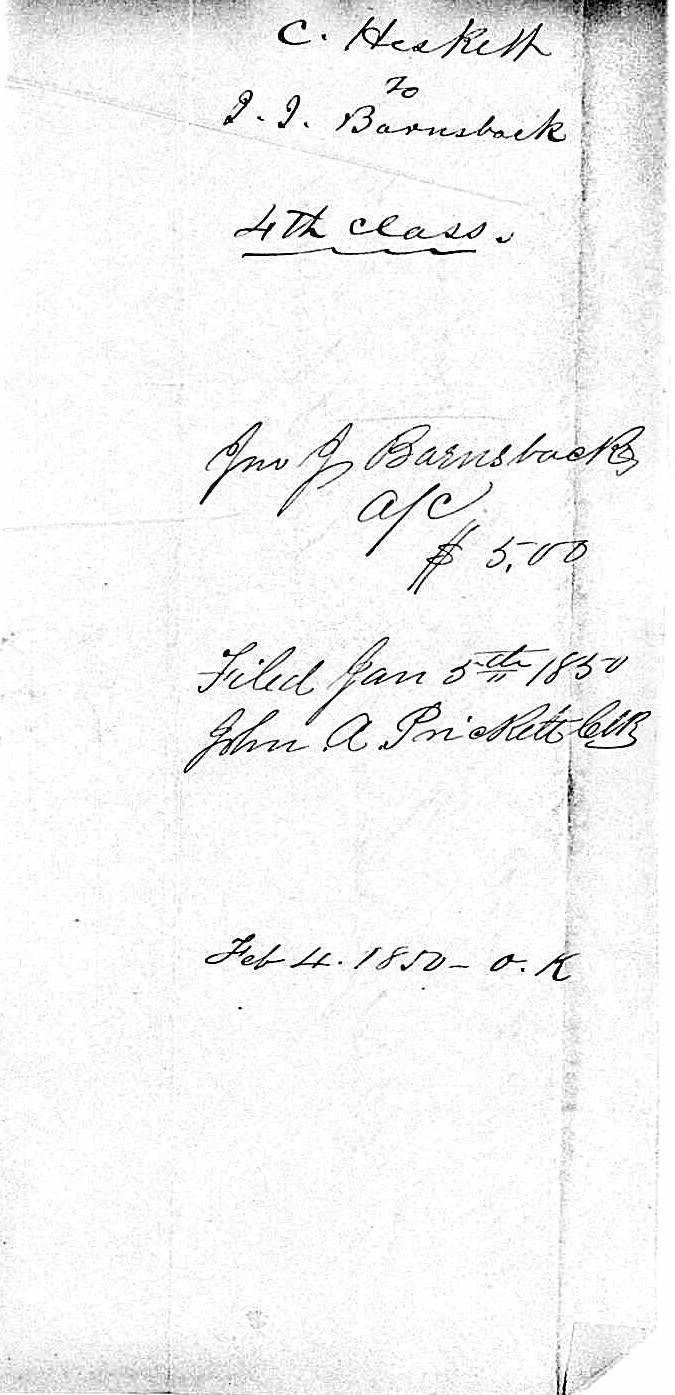 C. Hesketh
To
J. J. Barnsback
4th class.
Jno J Barnsback
a/c
$ 5,00
Filed Jan 5th 1850
John A Prickett Clk
Feb 4. 1850 - O. K